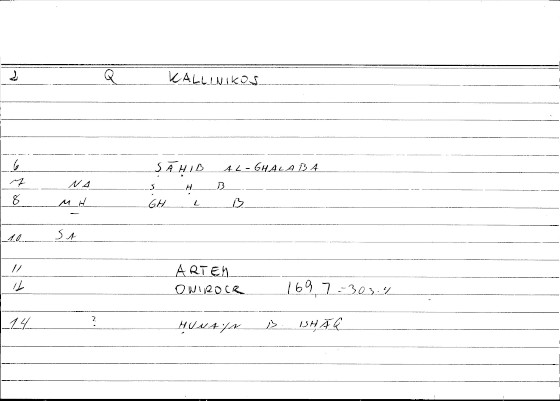 2 Q KALLINIKOS
6 ṢĀḤIB AL-GHALABA
7 NA Ṣ Ḥ B
8 MH GH L B
10 SA
11 ARTEM
12 ONIROCR 169,7=303.4
14 ? ḤUNAYN B ISḤĀQ